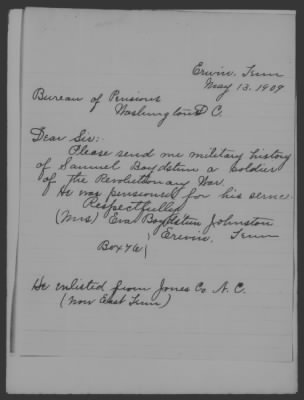 Erwin, Tenn
May 13, 1909
Bureau of Pensions
Washington D C.
Dear Sir:-
Please send me military history
of Samuel Boydstun a soldier
of the Revolutionary War.
He was pensioned for his
Respectfully
(Mrs) Eva Boydstun Johnston
Erwin, Tenn
Box 76
He enlisted from Jones Co N. C.
(now East Tenn)